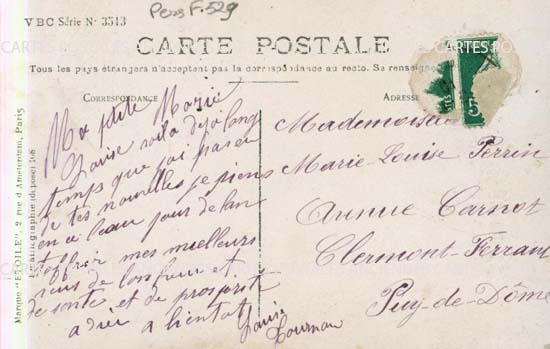 Pers F. 529
VBC Série N° 3513
CARTE POSTALE
Tous les pays étrangers n'acceptent pas la correspondance au recto. Se renseigne
CORRESPONDANCE
ADRESSE
Marque "ETOILE", 2 rue d'Amsterdam, Paris
Ma ptite Marie
Louise voila deja long
temps que jai pas eu
de tes nouvelles je viens
en ce beau jour de lan
toffrir mes meilleurs
veux de bonheur et
de sante et de prosperité
adieu a bientot
Louise
Mademoiselle
Marie-Louise Perrin
Avenue Carnot
Clermont-Ferrand
Puy-de-Dôme
5